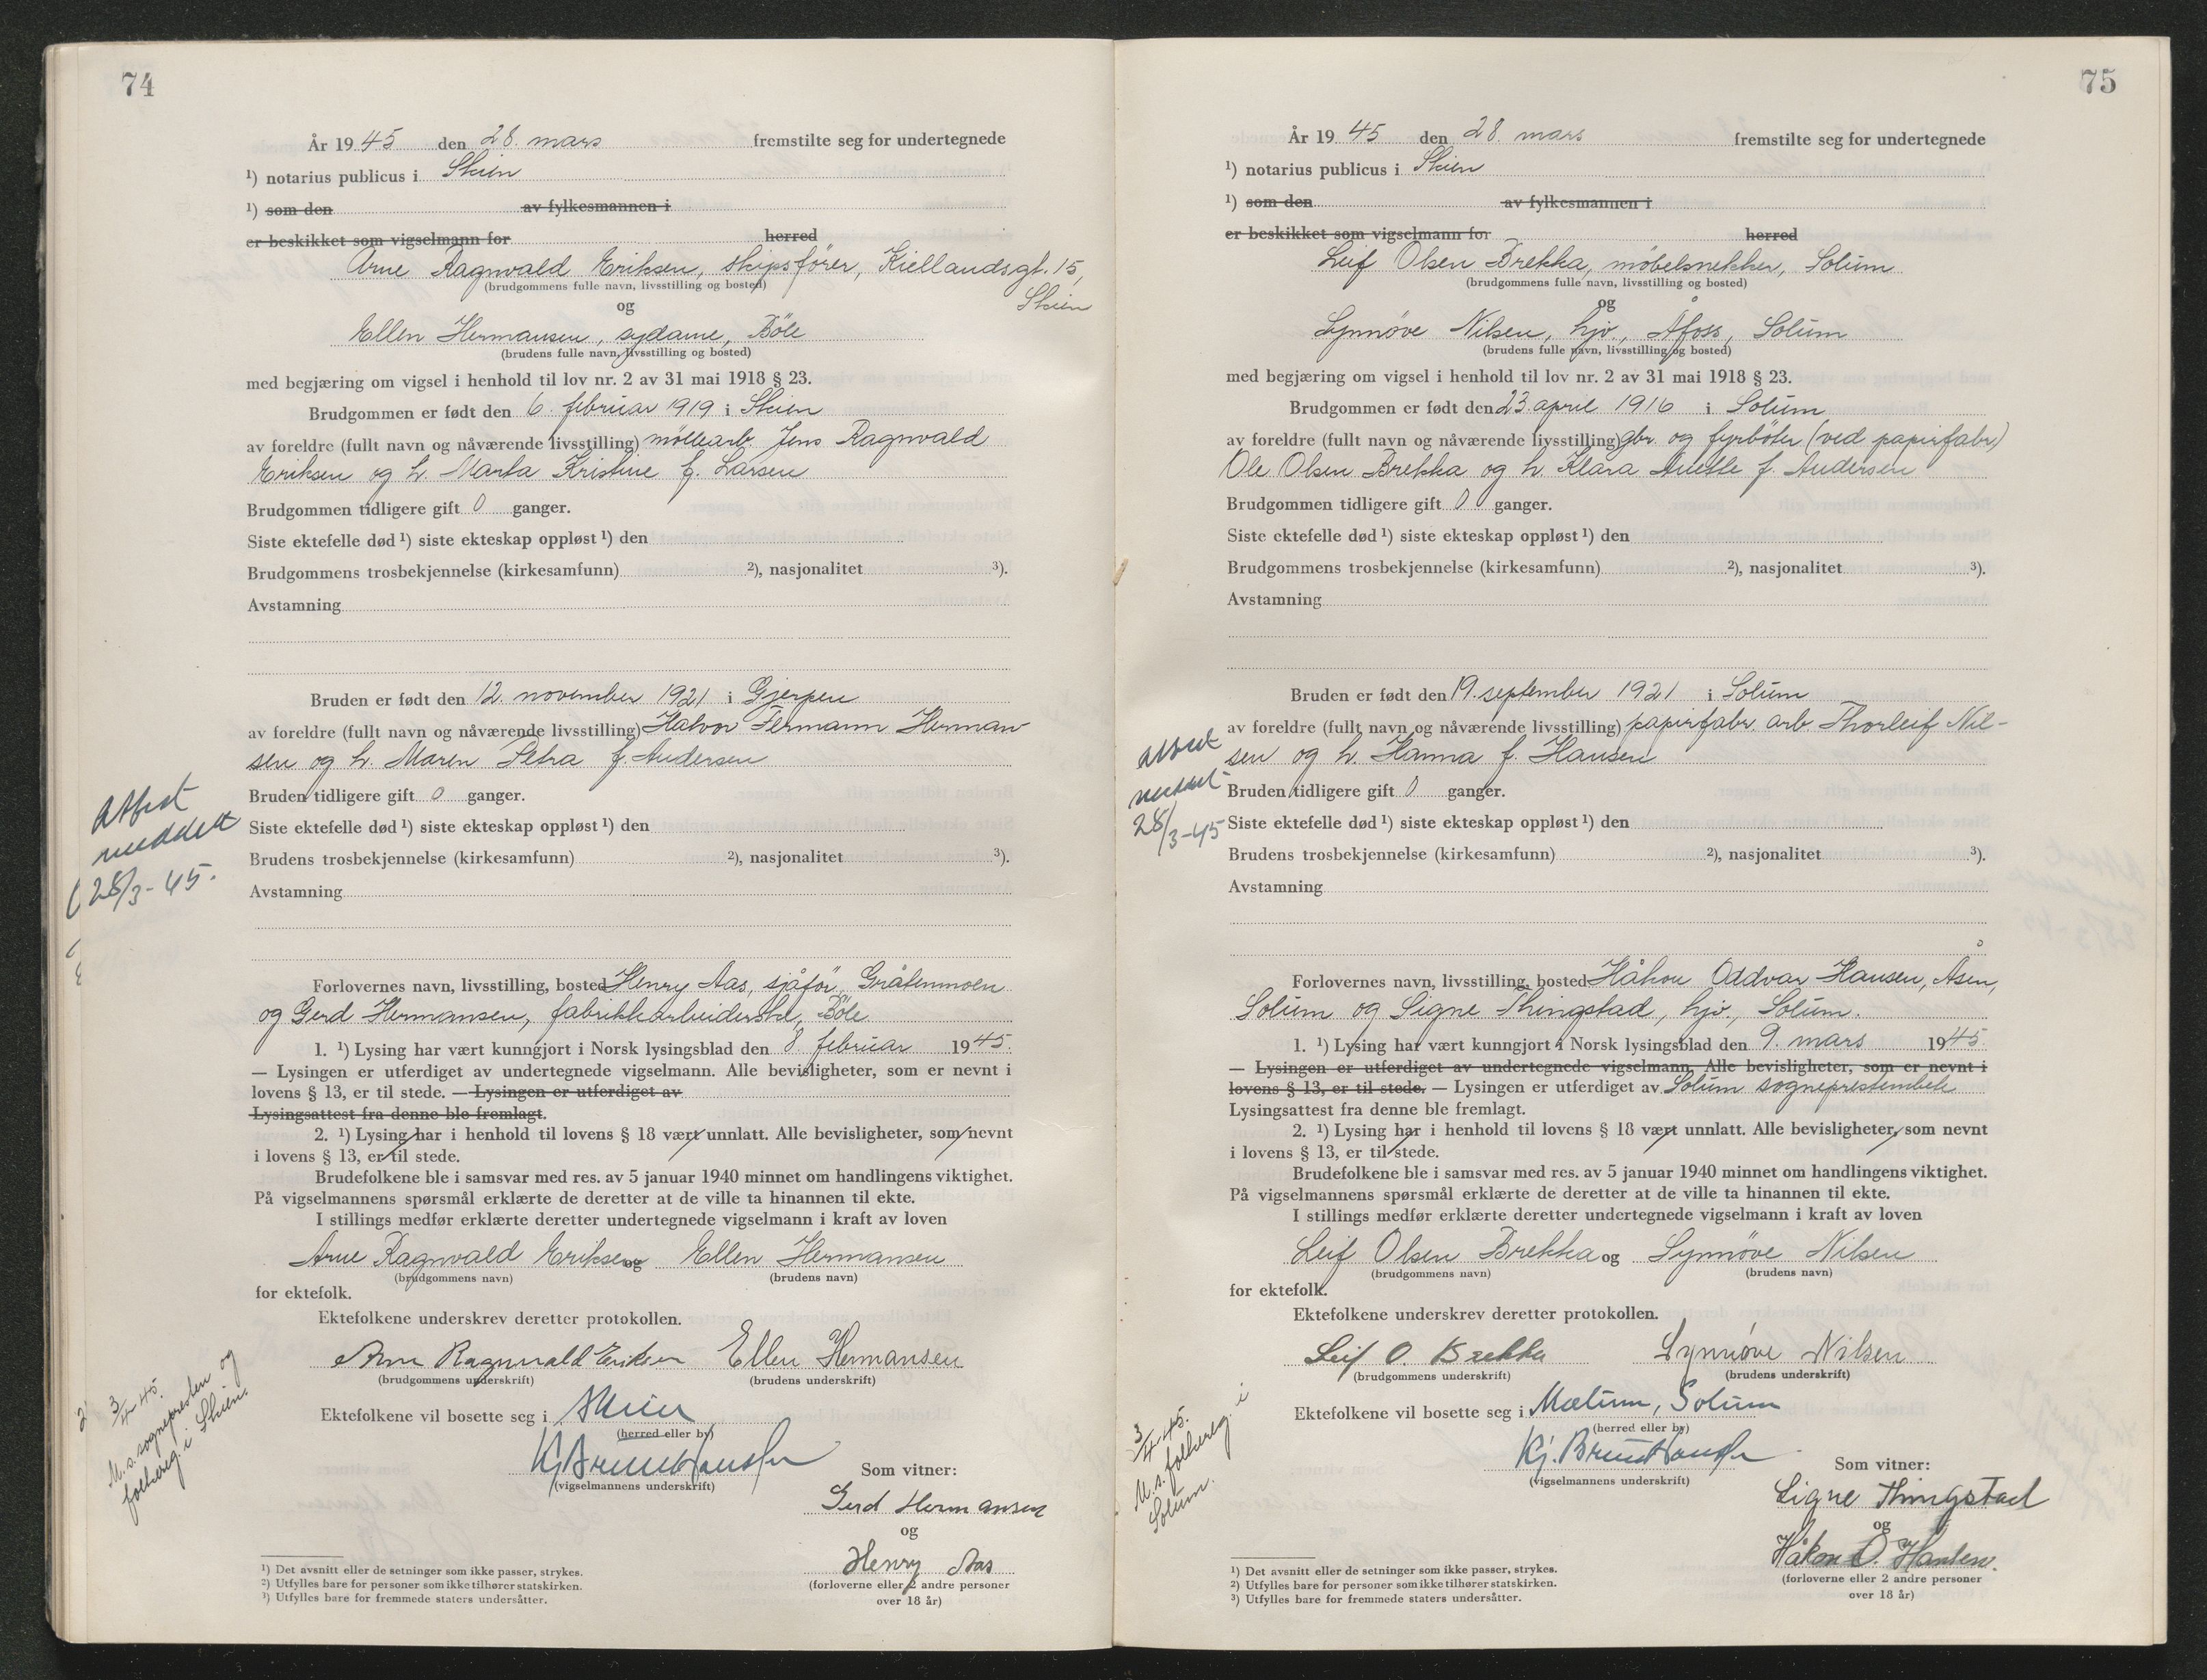 74
År 1945 den 28. mars fremstilte seg for undertegnede
¹) notarius publicus i Skien
¹) som den av fylkesmannen i
er beskikket som vigselmann for herred
Arne Ragnvald Eriksen, skipsfører, Kiellandsgt. 15,
(brudgommens fulle navn, livsstilling og bosted)
Skien
og
Ellen Hermansen, sydame, Böle
(brudens fulle navn, livsstilling og bosted)
med begjæring om vigsel i henhold til lov nr. 2 av 31 mai 1918 § 23.
Brudgommen er født den 6. februar 1919 i Skien
av foreldre (fullt navn og nåværende livsstilling) möllearb. Jens Ragnvald
Eriksen og h. Marta Kristine f. Larsen
Brudgommen tidligere gift 0 ganger.
Siste ektefelle død ¹) siste ekteskap oppløst ¹) den
Brudgommens trosbekjennelse (kirkesamfunn) ²), nasjonalitet ³).
Avstamning
Bruden er født den 12. november 1921 i Gjerpen
av foreldre (fullt navn og nåværende livsstilling) Halvor Fermann Herman
sen og h. Maren Petra f. Andersen
Bruden tidligere gift 0 ganger.
Siste ektefelle død ¹) siste ekteskap oppløst ¹) den
Brudens trosbekjennelse (kirkesamfunn) ²), nasjonalitet ³).
Avstamning
Attest
meddelt
28/3-45.
Forlovernes navn, livsstilling, bosted Henry Aas, sjåför, Gråtenmoen
og Gerd Hermansen, fabrikkarbeiderske, Böle
1. ¹) Lysing har vært kunngjort i Norsk lysingsblad den 8. februar 1945.
— Lysingen er utferdiget av undertegnede vigselmann. Alle bevisligheter, som er nevnt i
lovens § 13, er til stede. — Lysingen er utferdiget av
Lysingsattest fra denne ble fremlagt.
2. ¹) Lysing har i henhold til lovens § 18 vært unnlatt. Alle bevisligheter, som nevnt
i lovens § 13, er til stede.
Brudefolkene ble i samsvar med res. av 5 januar 1940 minnet om handlingens viktighet.
På vigselmannens spørsmål erklærte de deretter at de ville ta hinannen til ekte.
I stillings medfør erklærte deretter undertegnede vigselmann i kraft av loven
Arne Ragnvald Eriksen og Ellen Hermansen
(brudgommens navn) (brudens navn)
for ektefolk.
Ektefolkene underskrev deretter protokollen.
Arne Ragnvald Eriksen Ellen Hermansen
(brudgommens underskrift) (brudens underskrift)
Ektefolkene vil bosette seg i Skien
(herred eller by)
Kj. Bruun Hanssen
(vigselmannens underskrift)
Som vitner:
Gerd Hermansen
og
Henry Aas
(forloverne eller 2 andre personer
over 18 år)
3/4 45.
M. s. sognepresten og
folkereg. i Skien.
¹) Det avsnitt eller de setninger som ikke passer, strykes.
²) Utfylles bare for personer som ikke tilhører statskirken.
³) Utfylles bare for fremmede staters undersåtter.
75
År 1945 den 28. mars fremstilte seg for undertegnede
¹) notarius publicus i Skien
¹) som den av fylkesmannen i
er beskikket som vigselmann for herred
Leif Olsen Brekka, möbelsnekker, Solum
(brudgommens fulle navn, livsstilling og bosted)
og
Synnöve Nilsen, hjv., Åfoss, Solum
(brudens fulle navn, livsstilling og bosted)
med begjæring om vigsel i henhold til lov nr. 2 av 31 mai 1918 § 23.
Brudgommen er født den 23. april 1916 i Solum
av foreldre (fullt navn og nåværende livsstilling) gbr. og fyrböter (ved papirfabr)
Ole Olsen Brekka og h. Klara Anette f. Andersen
Brudgommen tidligere gift 0 ganger.
Siste ektefelle død ¹) siste ekteskap oppløst ¹) den
Brudgommens trosbekjennelse (kirkesamfunn) ²), nasjonalitet ³).
Avstamning
Bruden er født den 19. september 1921 i Solum
av foreldre (fullt navn og nåværende livsstilling) papirfabr. arb. Thorleif Nil-
sen og h. Hanna f. Hansen
Bruden tidligere gift 0 ganger.
Siste ektefelle død ¹) siste ekteskap oppløst ¹) den
Brudens trosbekjennelse (kirkesamfunn) ²), nasjonalitet ³).
Avstamning
Attest
meddelt
28/3-45
Forlovernes navn, livsstilling, bosted Håkon Oddvar Hansen, Åsen,
Solum og Signe Thingstad, hjv., Solum.
1. ¹) Lysing har vært kunngjort i Norsk lysingsblad den 9. mars 1945
— Lysingen er utferdiget av undertegnede vigselmann. Alle bevisligheter, som er nevnt i
lovens § 13, er til stede. — Lysingen er utferdiget av Solum sogneprestembete
Lysingsattest fra denne ble fremlagt.
2. ¹) Lysing har i henhold til lovens § 18 vært unnlatt. Alle bevisligheter, som nevnt
i lovens § 13, er til stede.
Brudefolkene ble i samsvar med res. av 5 januar 1940 minnet om handlingens viktighet.
På vigselmannens spørsmål erklærte de deretter at de ville ta hinannen til ekte.
I stillings medfør erklærte deretter undertegnede vigselmann i kraft av loven
Leif Olsen Brekka og Synnöve Nilsen
(brudgommens navn) (brudens navn)
for ektefolk.
Ektefolkene underskrev deretter protokollen.
Leif O. Brekka Synnöve Nilsen
(brudgommens underskrift) (brudens underskrift)
Ektefolkene vil bosette seg i Mælum, Solum
(herred eller by)
Kj. Bruun Hanssen
(vigselmannens underskrift)
Som vitner:
Signe Thingstad
og
Håkon O. Hansen.
(forloverne eller 2 andre personer
over 18 år)
3/4 45.
M. s. folkereg. i
Solum.
¹) Det avsnitt eller de setninger som ikke passer, strykes.
²) Utfylles bare for personer som ikke tilhører statskirken.
³) Utfylles bare for fremmede staters undersåtter.